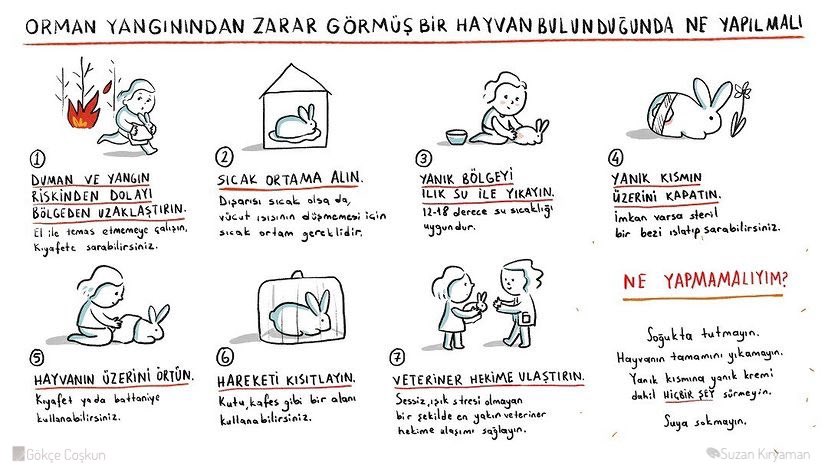 ORMAN YANGININDAN ZARAR GÖRMÜŞ BİR HAYVAN BULUNDUĞUNDA NE YAPILMALI
1
DUMAN VE YANGIN
RİSKİNDEN DOLAYI
BÖLGEDEN UZAKLAŞTIRIN.
El ile temas etmemeye çalışın,
Kıyafete sarabilirsiniz.
2
SICAK ORTAMA ALIN.
Dışarısı sıcak olsa da,
vücut ısısının düşmemesi için
sıcak ortam gereklidir.
3
YANIK BÖLGEYİ
ILIK SU İLE YIKAYIN.
12-18 derece su sıcaklığı
uygundur.
4
YANIK KISMIN
ÜZERİNİ KAPATIN.
İmkan varsa steril
bir bezi ıslatıp sarabilirsiniz.
5
HAYVANIN ÜZERİNİ ÖRTÜN.
Kıyafet ya da battaniye
kullanabilirsiniz.
6
HAREKETİ KISITLAYIN.
Kutu, kafes gibi bir alanı
kullanabilirsiniz.
7
VETERİNER HEKİME ULAŞTIRIN.
Sessiz, ışık stresi olmayan
bir şekilde en yakın veteriner
hekime ulaşımı sağlayın.
NE YAPMAMALIYIM?
Soğukta tutmayın.
Hayvanın tamamını yıkamayın.
Yanık kısmına yanık kremi
dahil HİÇBİR ŞEY sürmeyin.
Suya sokmayın.
Gökçe Coşkun
Suzan Kıryaman